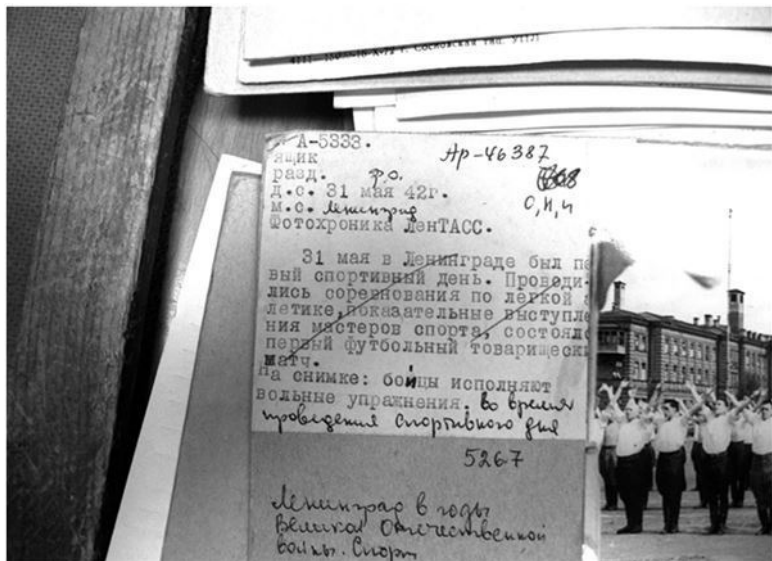 г. Сосновская тип. УИТЛ
А-5333.
Ар-46387
ящик
разд. ф.о.
д.с. 31 мая 42г.
О, Н, ч
м.с. Ленинград
Фотохроника ЛенТАСС.
31 мая в Ленинграде был пе
вый спортивный день. Проводи-
лись соревнования по легкой а
летике, показательные выступле
ния мастеров спорта, состоялс
первый футбольный товарищески
матч.
На снимке: бойцы исполняют
вольные упражнения. во время
проведения спортивного дня
5267
Ленинград в годы
Великой Отечественной
войны. Спорт